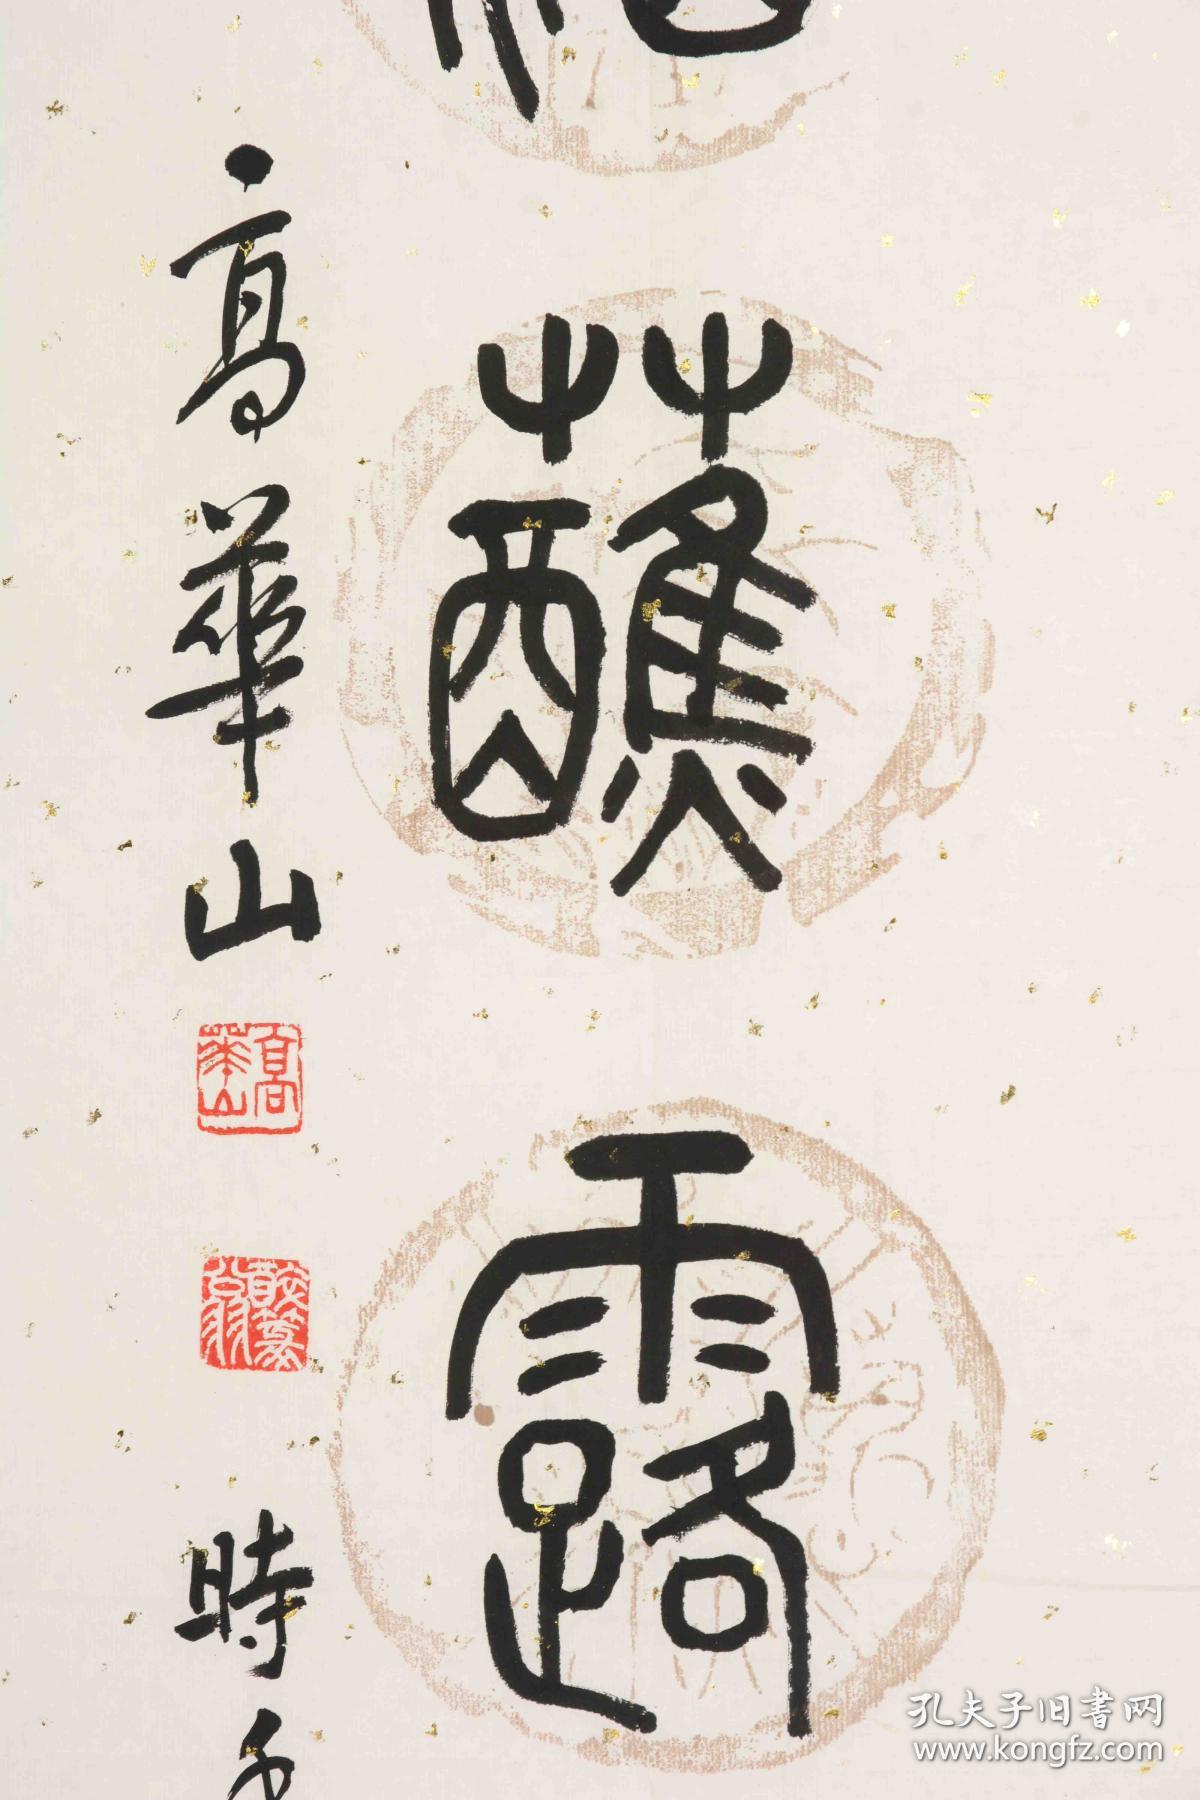 蘸
露
高華山
高華山
時年
孔夫子旧书网
www.kongfz.com